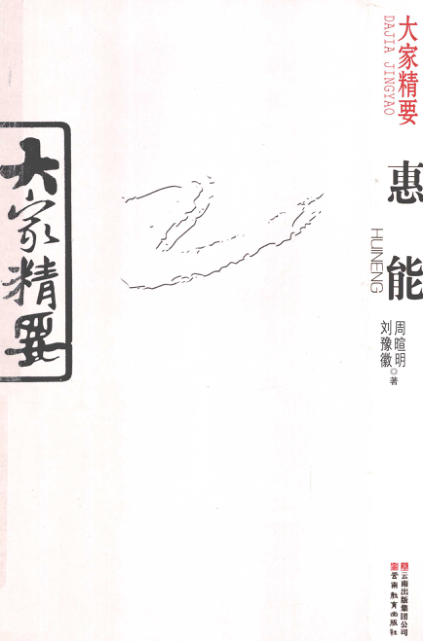 大家精要
大家精要
DAJIA JINGYAO
惠能
HUINENG
周暄明
刘豫徽
◎著
云南出版集团公司
云南教育出版社